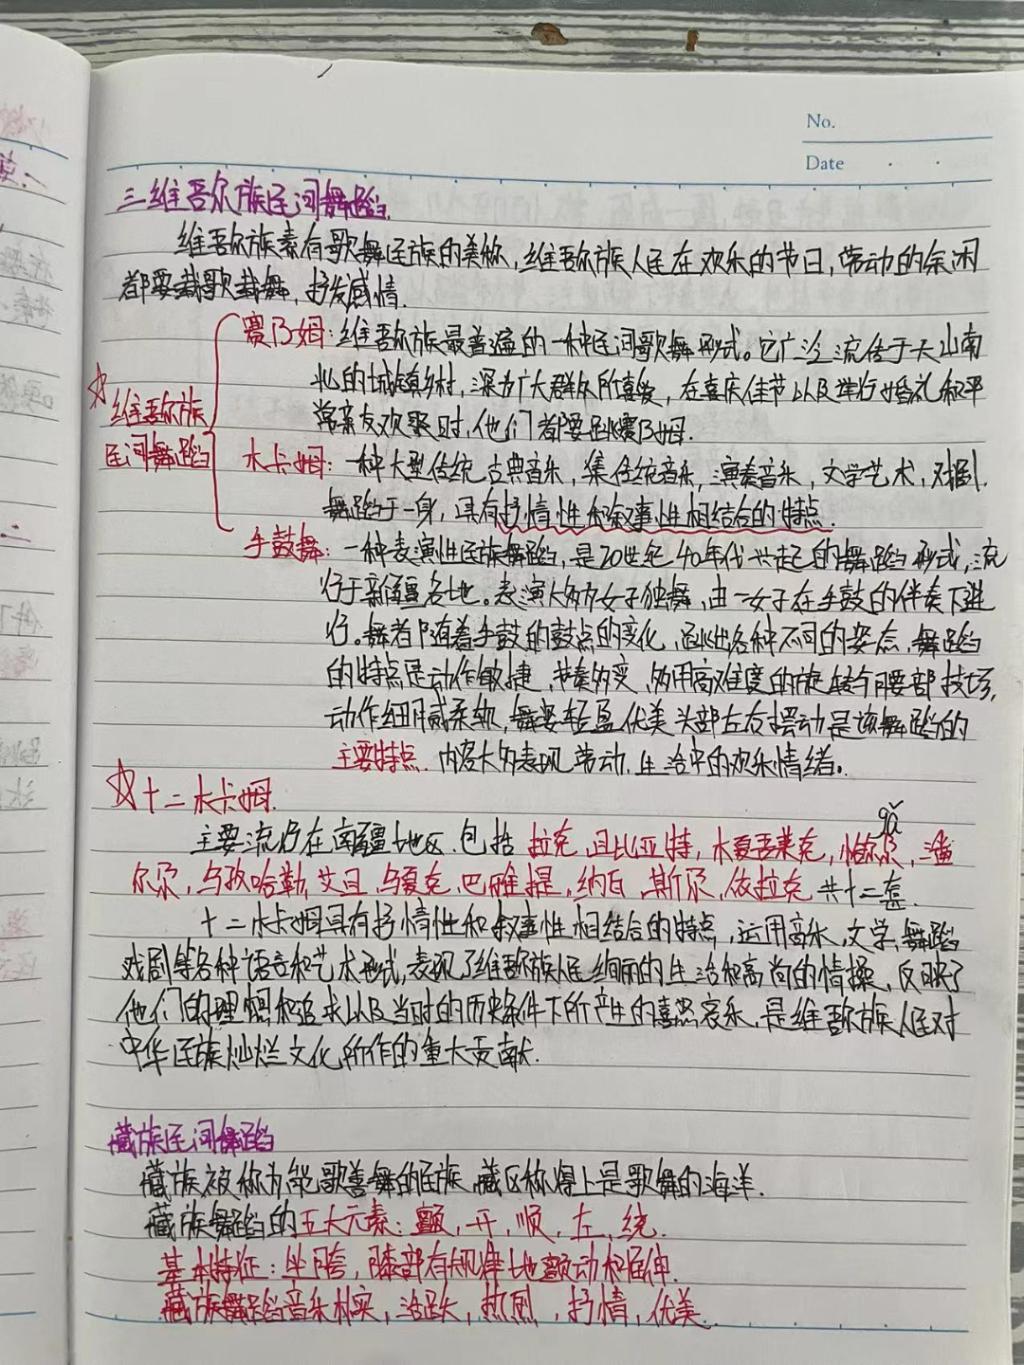 No.
Date
三.维吾尔族民间舞蹈.
维吾尔族素有歌舞民族的美称,维吾尔族人民在欢乐的节日,劳动的余闲
都要载歌载舞,抒发感情.
赛乃姆:维吾尔族最普遍的一种民间歌舞形式。它广泛流传于天山南
北的城镇乡村,深为广大群众所喜爱,在喜庆佳节以及举行婚礼和平
常亲友欢聚时,他们都要跳赛乃姆.
☆维吾尔族
民间舞蹈
木卡姆:一种大型传统古典音乐,集传统音乐,演奏音乐,文学艺术,戏剧.
舞蹈于一身,具有抒情性和叙事性相结合的特点.
手鼓舞:一种表演性民族舞蹈,是20世纪40年代兴起的舞蹈形式,流
行于新疆各地。表演大多为女子独舞,由一女子在手鼓的伴奏下进
行。舞者随着手鼓的鼓点的变化,跳出各种不同的姿态,舞蹈
的特点是动作敏捷,节奏多变,多用高难度的旋转与腰部技巧,
动作细腻柔软,舞姿轻盈优美.头部左右摆动是该舞蹈的
主要特点.内容大多表现劳动.生活中的欢乐情绪。
☆十二木卡姆.
gǎ
主要流行在南疆地区.包括拉克,且比亚特,木夏吾莱克,恰尔尕,潘
尔尕,乌孜哈勒,艾且,乌夏克,巴雅提,纳瓦,斯尕,依拉克 共十二套.
十二木卡姆具有抒情性和叙事性相结合的特点,运用音乐,文学,舞蹈
戏剧等各种语言和艺术形式,表现了维吾尔族人民绚丽的生活和高尚的情操,反映了
他们的理想和追求以及当时的历史条件下所产生的喜怒哀乐,是维吾尔族人民对
中华民族灿烂文化所作的重大贡献.
藏族民间舞蹈
藏族被称为能歌善舞的民族,藏区称得上是歌舞的海洋.
藏族舞蹈的五大元素:颤,开,顺,左,绕.
基本特征:坐胯,膝部有规律地颤动和屈伸.
藏族舞蹈音乐朴实,活跃,热烈,抒情,优美.